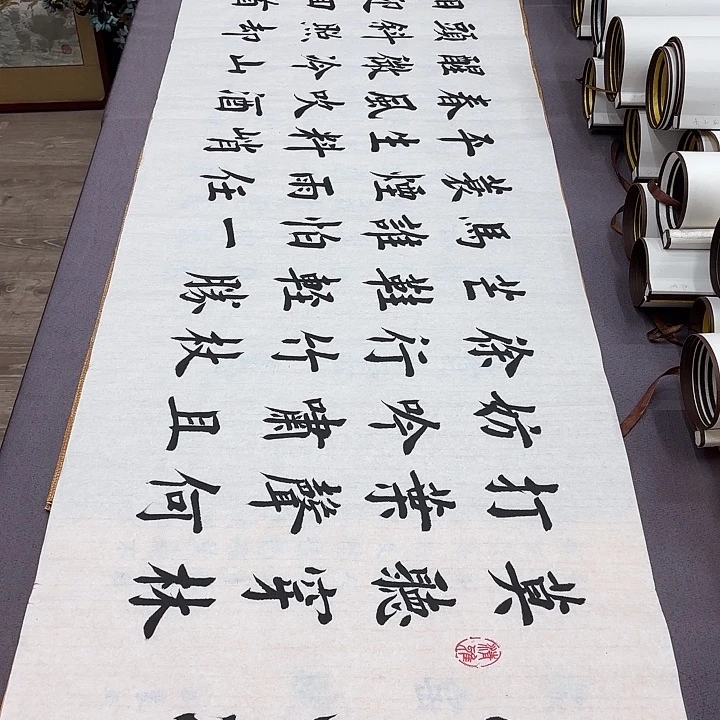 莫聽穿林
打葉聲何
妨吟嘯且
徐行竹杖
芒鞋輕勝
馬誰怕一
蓑煙雨任
平生料峭
春風吹酒
醒微冷山
頭斜照却
相迎回首